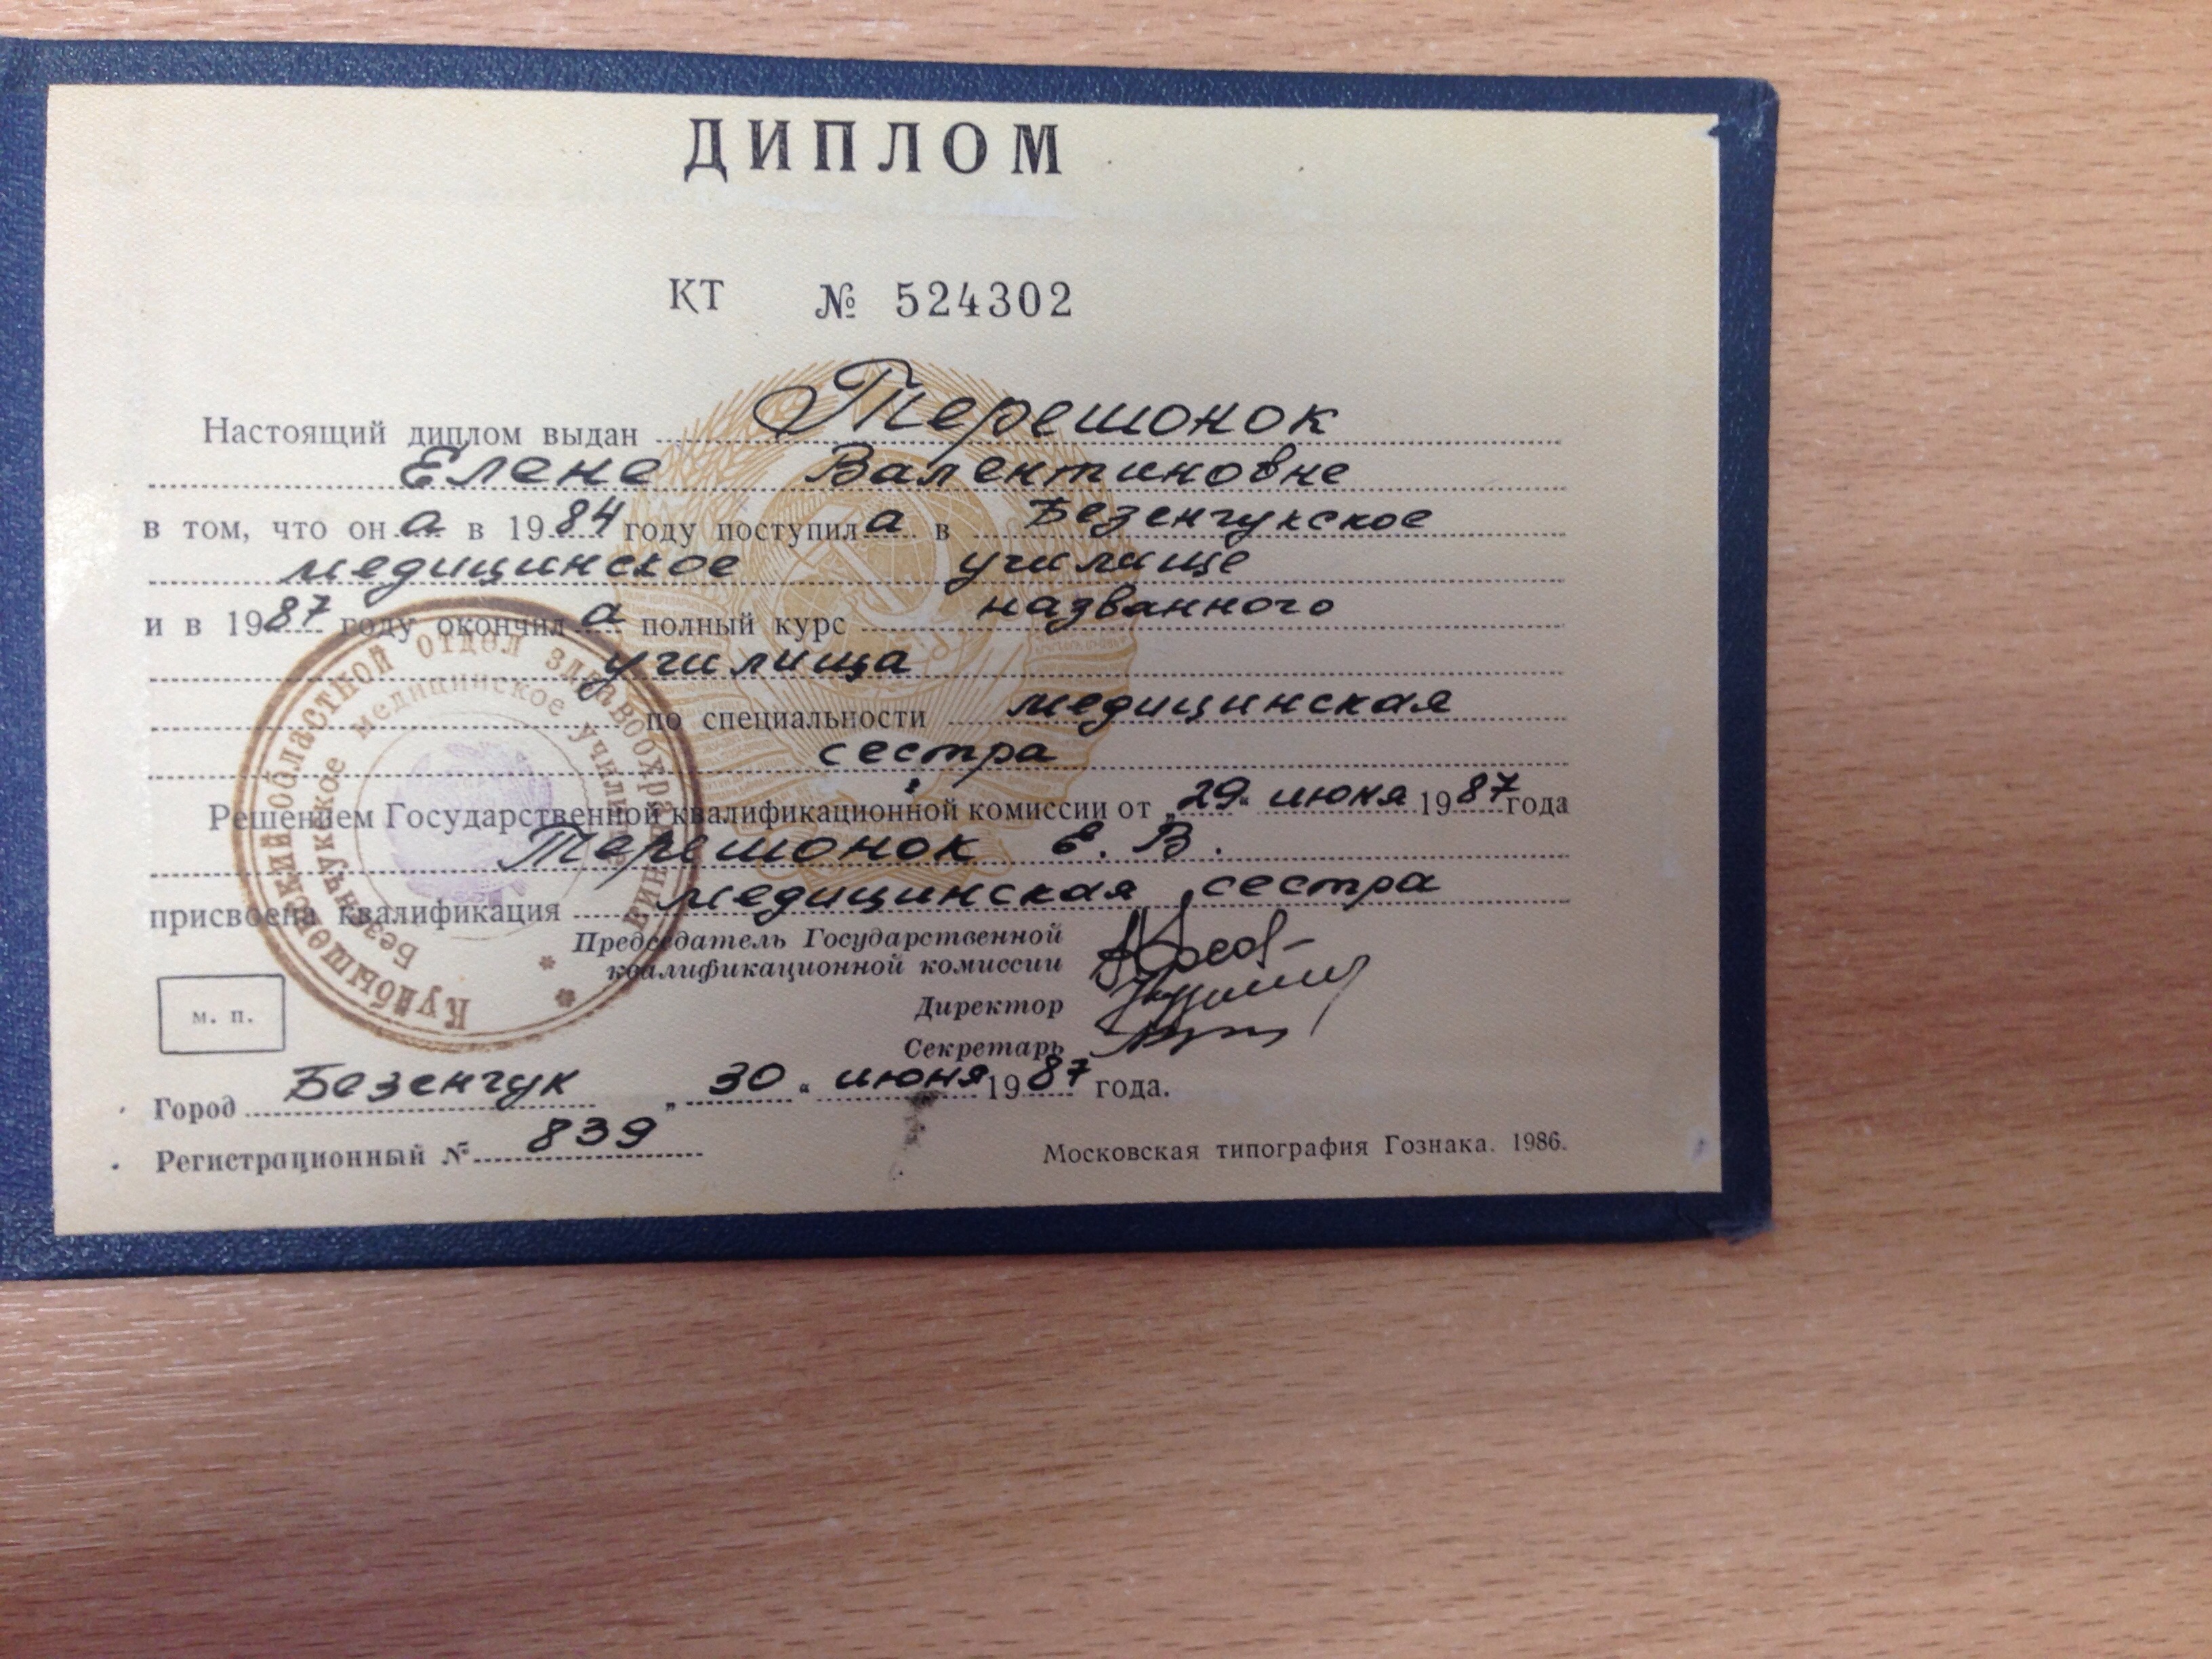 ДИПЛОМ
КТ № 524302
Настоящий диплом выдан Терешонок
Елене Валентиновне
в том, что она в 1984 году поступила в Безенчукское
медицинское училище
и в 1987 году окончила полный курс названного
училища
по специальности медицинская
сестра
Решением Государственной квалификационной комиссии от „29“ июня 1987 года
Терешонок Е. В.
присвоена квалификация медицинская сестра
Председатель Государственной
квалификационной комиссии
Директор
Секретарь
м. п.
Город Безенчук „30“ июня 1987 года.
Регистрационный № 839
Московская типография Гознака. 1986.
Куйбышевский областной отдел здравоохранения
Безенчукское медицинское училище